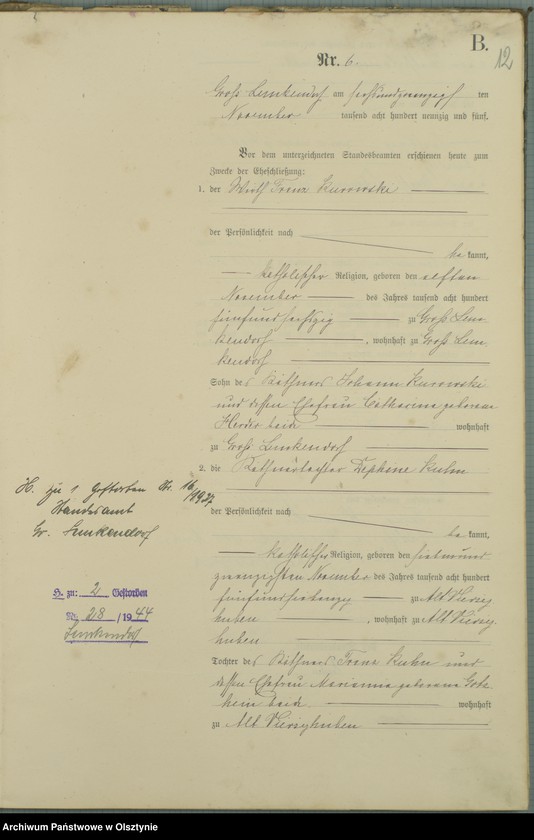 B.
12
Nr. 6.
Groß Lemkendorf am sechsundzwanzig ten
November tausend acht hundert neunzig und fünf.
Vor dem unterzeichneten Standesbeamten erschienen heute zum
Zwecke der Eheschließung:
1. der Wirth Franz Kurowski
der Persönlichkeit nach
be kannt,
katholischer Religion, geboren den elften
November des Jahres tausend acht hundert
fünfundsechszig zu Groß Lem-
kendorf, wohnhaft zu Groß Lem-
kendorf
Sohn des Käthners Johann Kurowski
und dessen Ehefrau Catharina geborene
Herder beide wohnhaft
zu Groß Lemkendorf
2. die Käthnertochter Kuhn
der Persönlichkeit nach
be kannt,
katholischer Religion, geboren den siebenund-
zwanzigsten November des Jahres tausend acht hundert
fünfundsiebenzig zu Alt Vierzig-
huben, wohnhaft zu Alt Vierzig-
huben
Tochter des Käthners Franz Kuhn und
dessen Ehefrau geborene
beide wohnhaft
zu Alt Vierzighuben
H. zu 1 Gestorben Nr. 16/1937
Standesamt
Gr. Lemkendorf
H. zu: 2 Gestorben
Nr. 28 / 1944
Lemkendorf
Archiwum Państwowe w Olsztynie